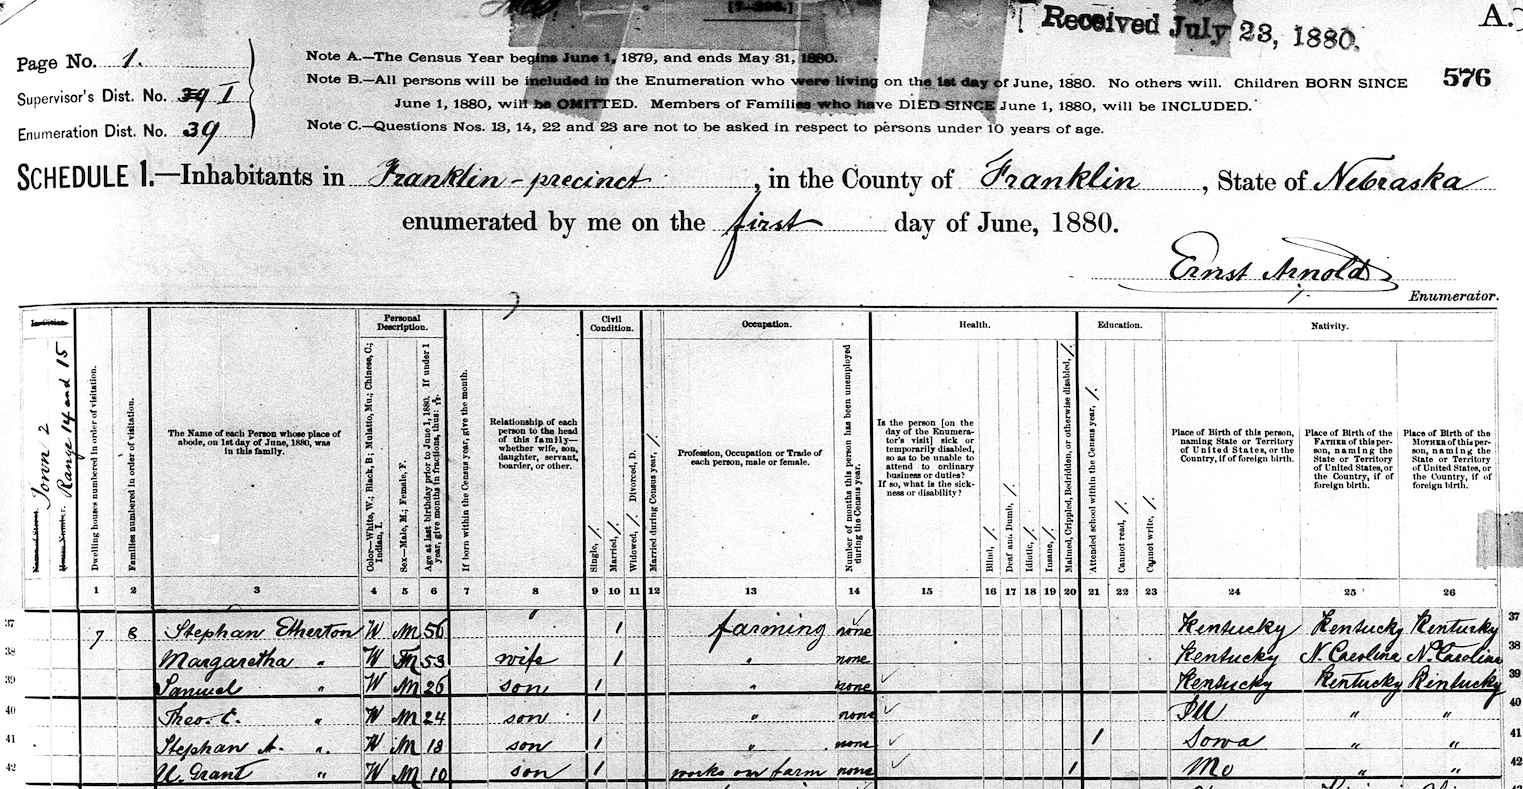 [7-296.]
Received July 23, 1880.
A.
Page No. 1.
Supervisor's Dist. No. 39 I
Enumeration Dist. No. 39
Note A.—The Census Year begins June 1, 1879, and ends May 31, 1880.
Note B.—All persons will be included in the Enumeration who were living on the 1st day of June, 1880. No others will. Children BORN SINCE
June 1, 1880, will be OMITTED. Members of Families who have DIED SINCE June 1, 1880, will be INCLUDED.
Note C.—Questions Nos. 13, 14, 22 and 23 are not to be asked in respect to persons under 10 years of age.
576
SCHEDULE 1.—Inhabitants in Franklin - precinct, in the County of Franklin, State of Nebraska
enumerated by me on the first day of June, 1880.
Ernst Arnold
Enumerator.
In Cities.
Name of Street.
House Number.
Town 2
Range 14 and 15
Dwelling houses numbered in order of visitation.
Families numbered in order of visitation.
The Name of each Person whose place of
abode, on 1st day of June, 1880, was
in this family.
Personal
Description.
Color—White, W.; Black, B; Mulatto, Mu.; Chinese, C.;
Indian, I.
Sex—Male, M.; Female, F.
Age at last birthday prior to June 1, 1880. If under 1
year, give months in fractions, thus:
If born within the Census year, give the month.
Relationship of each
person to the head
of this family—
whether wife, son,
daughter, servant,
boarder, or other.
Civil
Condition.
Single, /.
Married, /.
Widowed, /. Divorced, D.
Married during Census year, /.
Occupation.
Profession, Occupation or Trade of
each person, male or female.
Number of months this person has been unemployed
during the Census year.
Health.
Is the person [on the
day of the Enumera-
tor's visit] sick or
temporarily disabled,
so as to be unable to
attend to ordinary
business or duties?
If so, what is the sick-
ness or disability?
Blind, /.
Deaf and Dumb, /.
Idiotic, /.
Insane, /.
Maimed, Crippled, Bedridden, or otherwise disabled, /.
Education.
Attended school within the Census year, /.
Cannot read, /.
Cannot write, /.
Nativity.
Place of Birth of this person,
naming State or Territory
of United States, or the
Country, if of foreign birth.
Place of Birth of the
FATHER of this per-
son, naming the
State or Territory
of United States, or
the Country, if of
foreign birth.
Place of Birth of the
MOTHER of this per-
son, naming the
State or Territory
of United States, or
the Country, if of
foreign birth.
1 2 3 4 5 6 7 8 9 10 11 12 13 14 15 16 17 18 19 20 21 22 23 24 25 26
37 7 8 Stephan Etherton W M 56 1 farming none Kentucky Kentucky Kentucky 37
38 Margaretha " W F 53 wife 1 " none Kentucky N. Carolina N. Carolina 38
39 Samuel " W M 26 son 1 " none Kentucky Kentucky Kentucky 39
40 Theo. C. " W M 24 son 1 " none Ill " " 40
41 Stephan A. " W M 18 son 1 " none 1 Iowa " " 41
42 U. Grant " W M 10 son 1 works on farm none 1 Mo " " 42